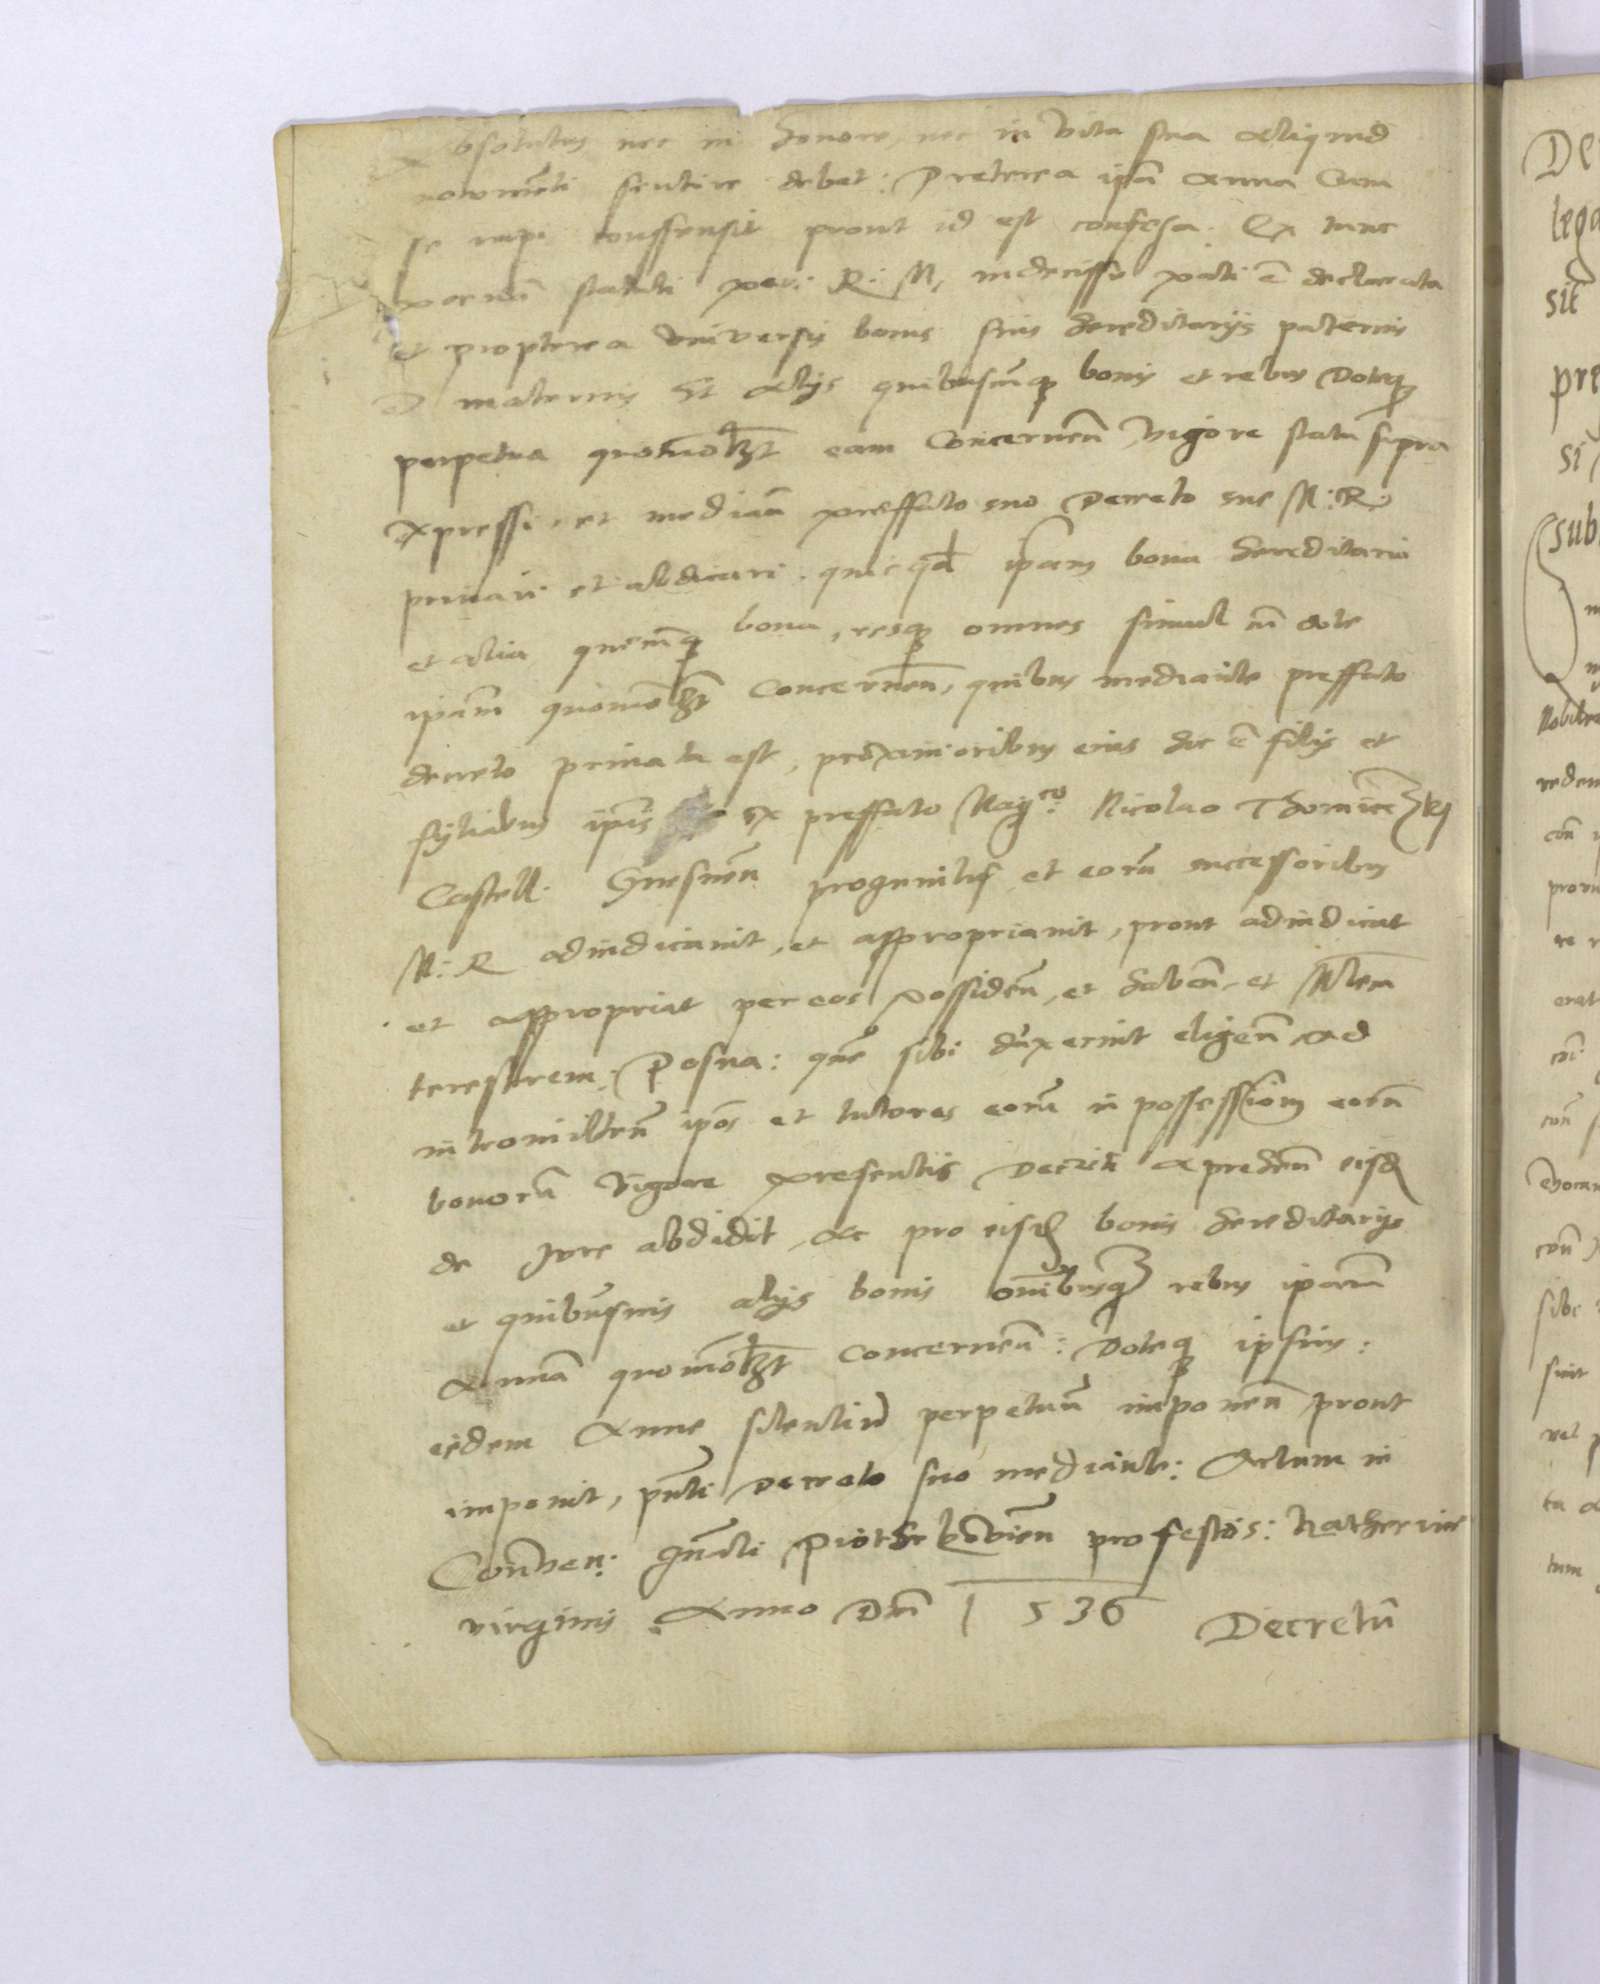 absolutus nec in honore, nec in vita sua aliquid
nocumēti sentire debet: Preterea ipā Anna Cum
se rapi conssensit prout id est confesa. Ex tunc
penā statuti per: R: M, indecissū pati ē declarata
et propterea universis bonis suis hereditarijs paternis
et maternis et alijs quibuscūq bonis et rebus doteq
perpetua quomōlzt eam Concernen̄ vigore statu supra
expressi et median̄ preffato suo Decreto sue M: R
privari et abdicari. quicqd ipam bona hereditaria
et alia quecūq bona, resq omnes simul cū dote
ipam quomōlzt Concernen̄, quibus mediante preffato
decreto privata est, proximioribus eius hic ē filijs et
fyliabus ipīs ex preffato Mag.co Nicolao Thomiczkj
Castell. Gnesnen̄ progenitis et eorū successoribus
M: R adiudicavit, et appropriavit, prout adiudicat
et appropriat per eos possiden̄, et haben̄, et Mltem
terestrem. Posna: quē sibi duxerint eligen̄ ad
intromitten̄ ipōs et tutores eorū in possessiōnē eorū
bonorū vigore presentis Decreti apprehen̄ eisd
de Jure addidit, ac pro eisd bonis hereditarijs
et quibusvis alijs bonis omībusq rebus ipam
Annā quomōlzt concernen̄: Doteq ipsius:
eidem Anne silentiū perpetuū imponen̄ prout
imponit, pn̄ti Decreto suo mediante: Actum in
Cōnven: gn̄ali Piotrkovien̄ pro festo s: Katherine
virginis Anno Dn̄i 1536 Decretū